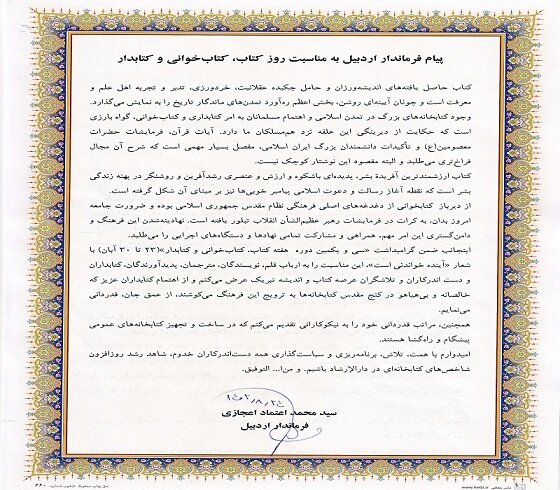 پیام فرماندار اردبیل به مناسبت روز کتاب، کتاب‌خوانی و کتابدار
کتاب حاصل یافته‌های اندیشه‌ورزان و حامل چکیده عقلانیت، خردورزی، تدبر و تجربه اهل علم و
معرفت است و چونان آیینه‌ای روشن، بخش اعظم ره‌آورد تمدن‌های ماندگار تاریخ را به نمایش می‌گذارد.
وجود کتابخانه‌های بزرگ در تمدن اسلامی و اهتمام مسلمانان به امر کتابداری و کتاب‌خوانی، گواه بارزی
است که حکایت از دیرینگی این علقه نزد هم‌مسلکان ما دارد. آیات قرآن، فرمایشات حضرات
معصومین(ع) و تأکیدات دانشمندان بزرگ ایران اسلامی، مفصل بسیار مهمی است که شرح آن مجال
فراخ‌تری می‌طلبد و البته مقصود این نوشتار کوچک نیست.
کتاب ارزشمندترین آفریدۀ بشر، پدیده‌ای باشکوه و ارزش و عنصری رشدآفرین و روشنگر در پهنه زندگی
بشر است که نقطه آغاز رسالت و دعوت اسلامی پیامبر خوبی‌ها نیز بر مبنای آن شکل گرفته است.
از دیرباز کتابخوانی از دغدغه‌های اصلی فرهنگی نظام مقدس جمهوری اسلامی بوده و ضرورت جامعه
امروز بدان، به کرات در فرمایشات رهبر عظیم‌الشأن انقلاب تبلور یافته است. نهادینه‌شدن این فرهنگ و
دامن‌گستری این امر مهم، همراهی و مشارکت تمامی نهادها و دستگاه‌های اجرایی را می‌طلبد.
اینجانب ضمن گرامیداشت «سی و یکمین دوره هفته کتاب، کتاب‌خوانی و کتابدار»(۲۳ تا ۳۰ آبان) با
شعار «آینده خواندنی است»، این مناسبت را به ارباب قلم، نویسندگان، مترجمان، پدیدآورندگان، کتابداران
و دست اندرکاران و تلاشگران عرصه کتاب و اندیشه تبریک عرض می‌کنم و از اهتمام کتابداران عزیز که
خالصانه و بی‌هیاهو در کنج مقدس کتابخانه‌ها به ترویج این فرهنگ می‌کوشند، از عمق جان، قدردانی
می‌نمایم.
همچنین، مراتب قدردانی خود را به نیکوکارانی تقدیم می‌کنم که در ساخت و تجهیز کتابخانه‌های عمومی
پیشگام و راه‌گشا هستند.
امیدوارم با همت، تلاش، برنامه‌ریزی و سیاست‌گذاری همه دست‌اندرکاران خدوم، شاهد رشد روزافزون
شاخص‌های کتابخانه‌ای در دارالارشاد باشیم. و من‌ا... التوفیق.
سید محمد اعتماد اعجازی
فرماندار اردبیل